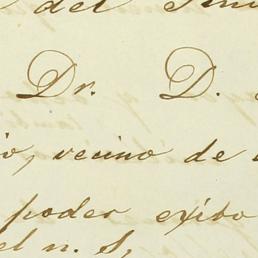 del
Dr. D.
vecino de
poder exibo
el n. S,